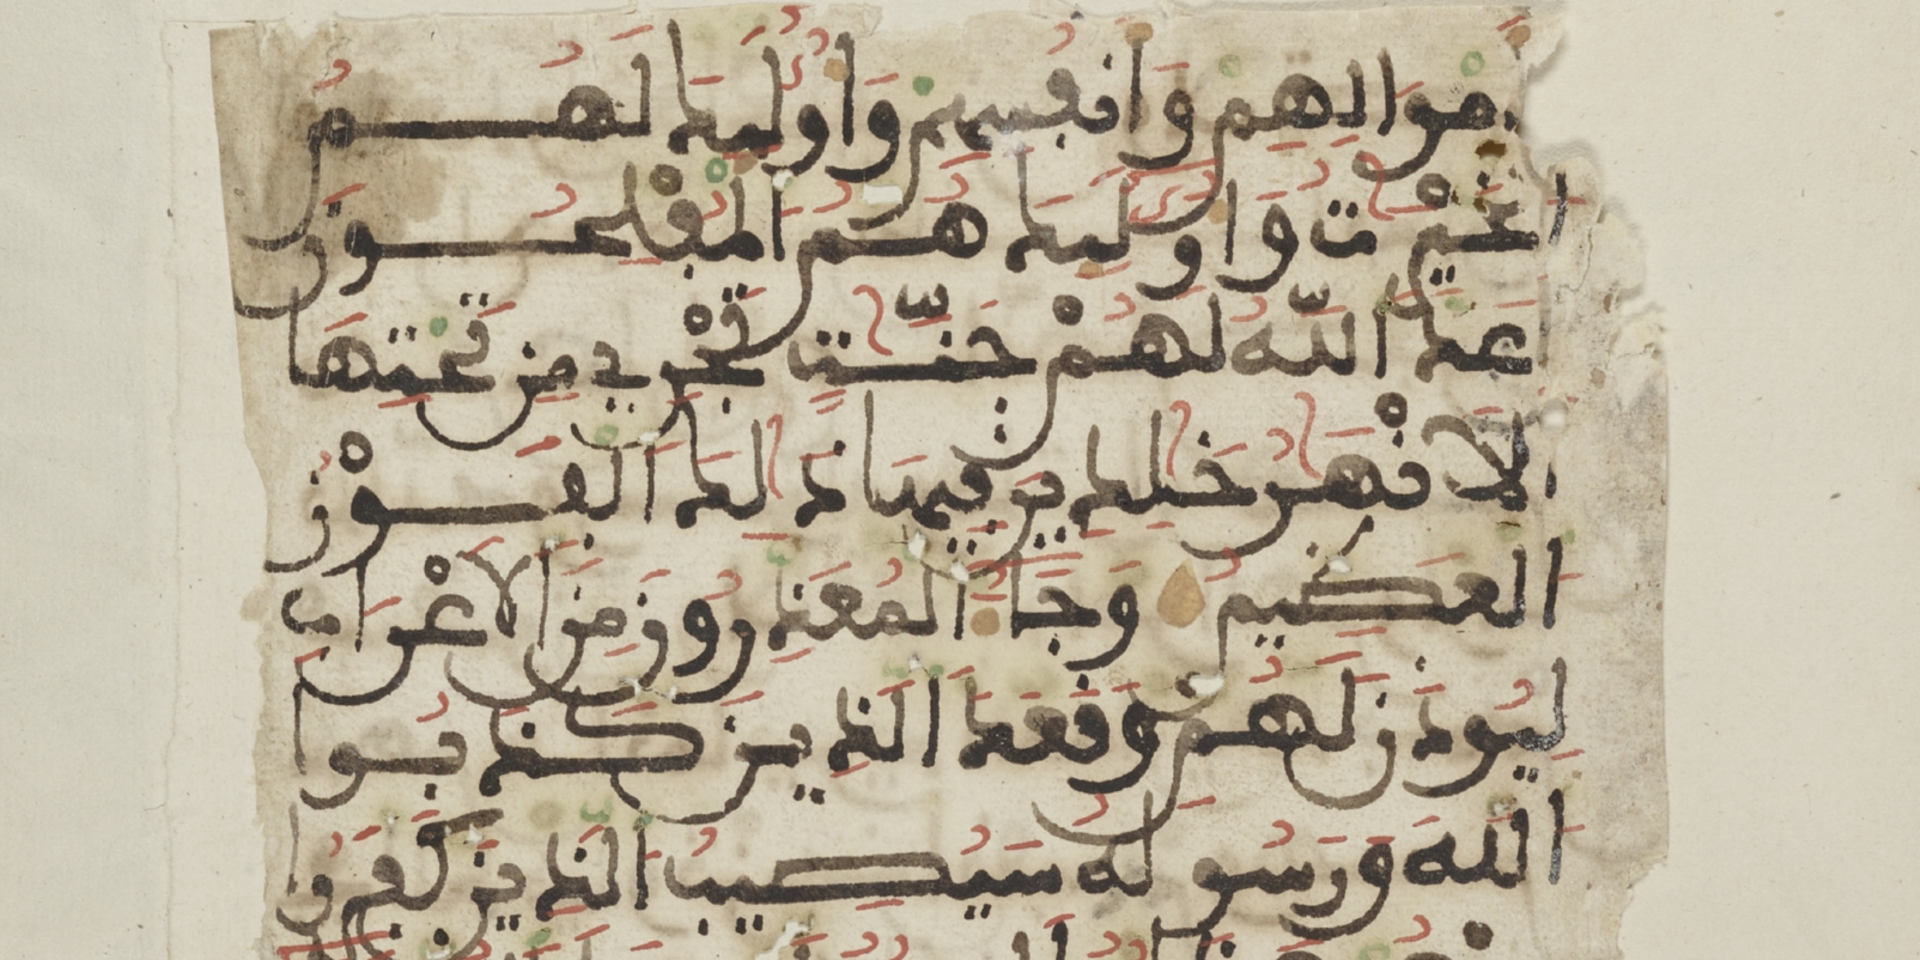 موالهم وَأنفسهم وَاُوليِكَ لَهُمُ
الخَيْرَٰتُ وَاُوليِكَ هُمُ المُفْلِحُونَ
اَعَدَّ اللّهُ لَهُمْ جَنَّٰتٍ تَجْرِي مِن تَحْتِهَا
الَانْهَٰرُ خَٰلِدِينَ فِيهَا ذَٰلِكَ الفَوْزُ
العَظِيمُ وَجَا المُعَذِّرُونَ مِنَ الَاعْرَابِ
لِيُوذَنَ لَهُمْ وَقَعَدَ الذِينَ كَذَبُوا
اللهَ وَرَسُولَهُ سَيُصِيبُ الذِينَ كَفَرُوا